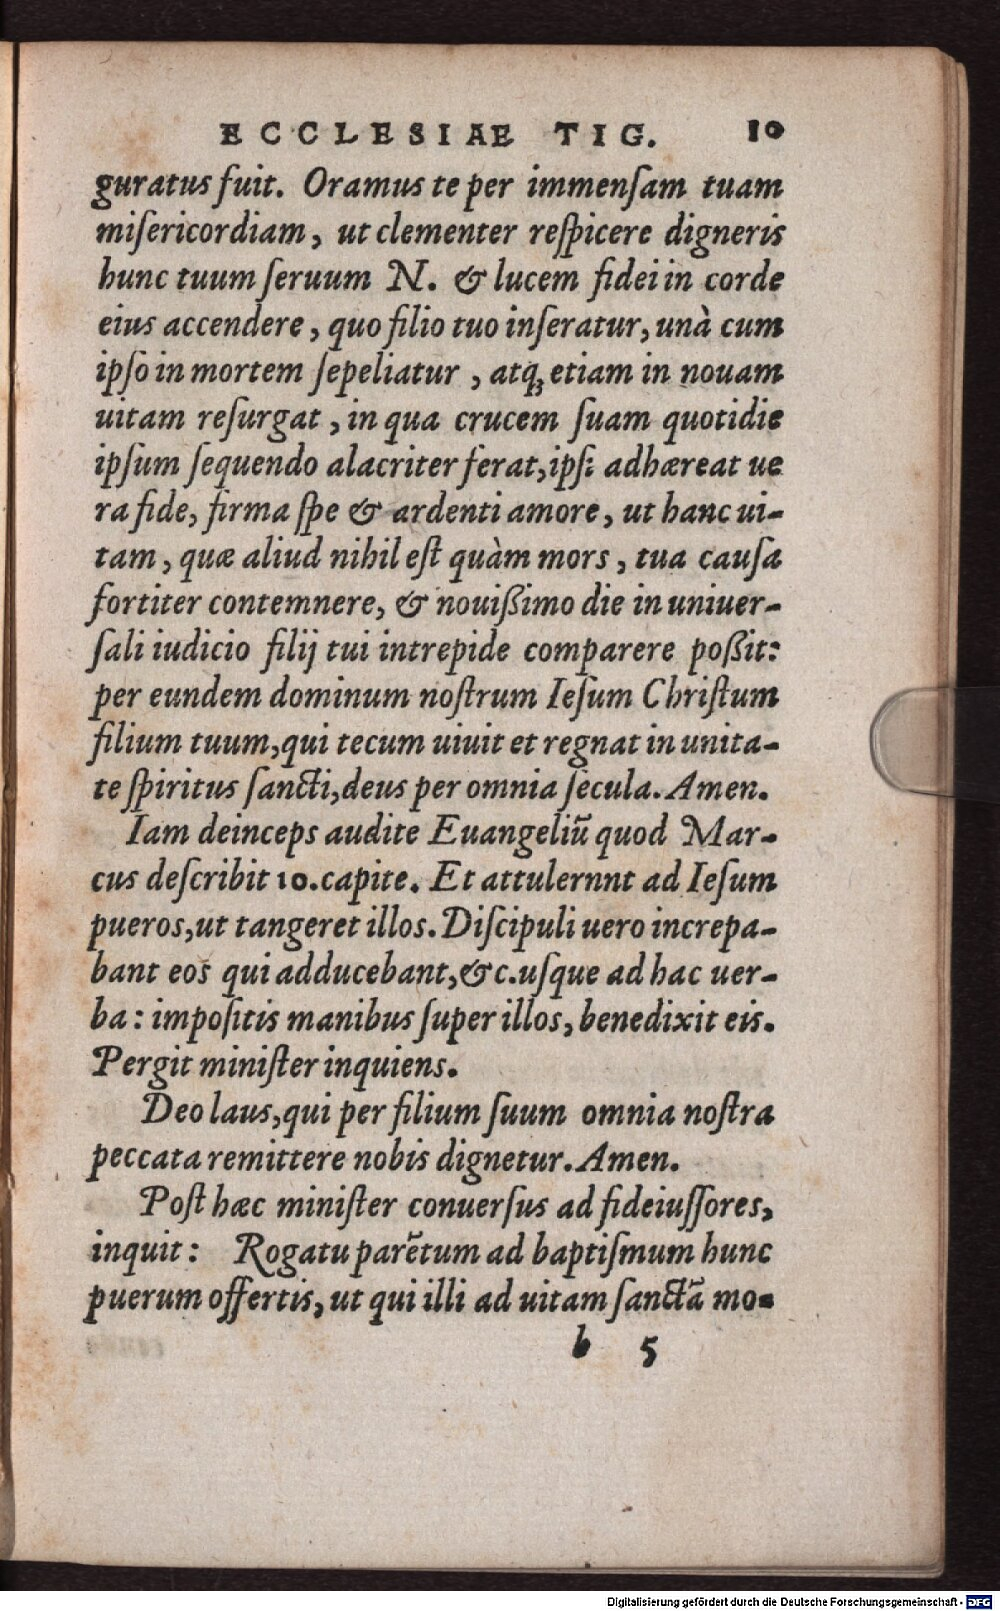 ECCLESIAE TIG. 10
guratus fuit. Oramus te per immenſam tuam
miſericordiam, ut clementer reſpicere digneris
hunc tuum ſeruum N. & lucem fidei in corde
eius accendere, quo filio tuo inſeratur, unà cum
ipſo in mortem ſepeliatur, atq; etiam in nouam
uitam reſurgat, in qua crucem ſuam quotidie
ipſum ſequendo alacriter ferat, ipſi adhæreat ue
ra fide, firma ſpe & ardenti amore, ut hanc ui-
tam, quæ aliud nihil eſt quàm mors, tua cauſa
fortiter contemnere, & nouißimo die in uniuer-
ſali iudicio filij tui intrepide comparere poßit:
per eundem dominum noſtrum Ieſum Chriſtum
filium tuum, qui tecum uiuit et regnat in unita-
te ſpiritus ſancti, deus per omnia ſecula. Amen.
Iam deinceps audite Euangeliũ quod Mar-
cus deſcribit 10. capite. Et attulernnt ad Ieſum
pueros, ut tangeret illos. Diſcipuli uero increpa-
bant eos qui adducebant, &c. uſque ad hac uer-
ba: impoſitis manibus ſuper illos, benedixit eis.
Pergit miniſter inquiens.
Deo laus, qui per filium ſuum omnia noſtra
peccata remittere nobis dignetur. Amen.
Poſt hæc miniſter conuerſus ad fideiuſſores,
inquit: Rogatu parẽtum ad baptiſmum hunc
puerum offertis, ut qui illi ad uitam ſanctã mo-
b 5
Digitalisierung gefördert durch die Deutsche Forschungsgemeinschaft - DFG